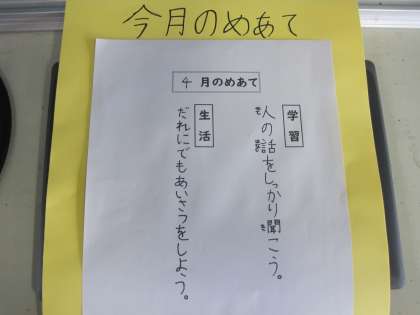 今月のめあて
4月のめあて
学習
人の話をしっかり聞こう。
生活
だれにでもあいさつをしよう。